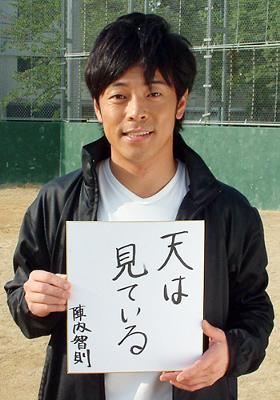 天は
見ている
陣内智則